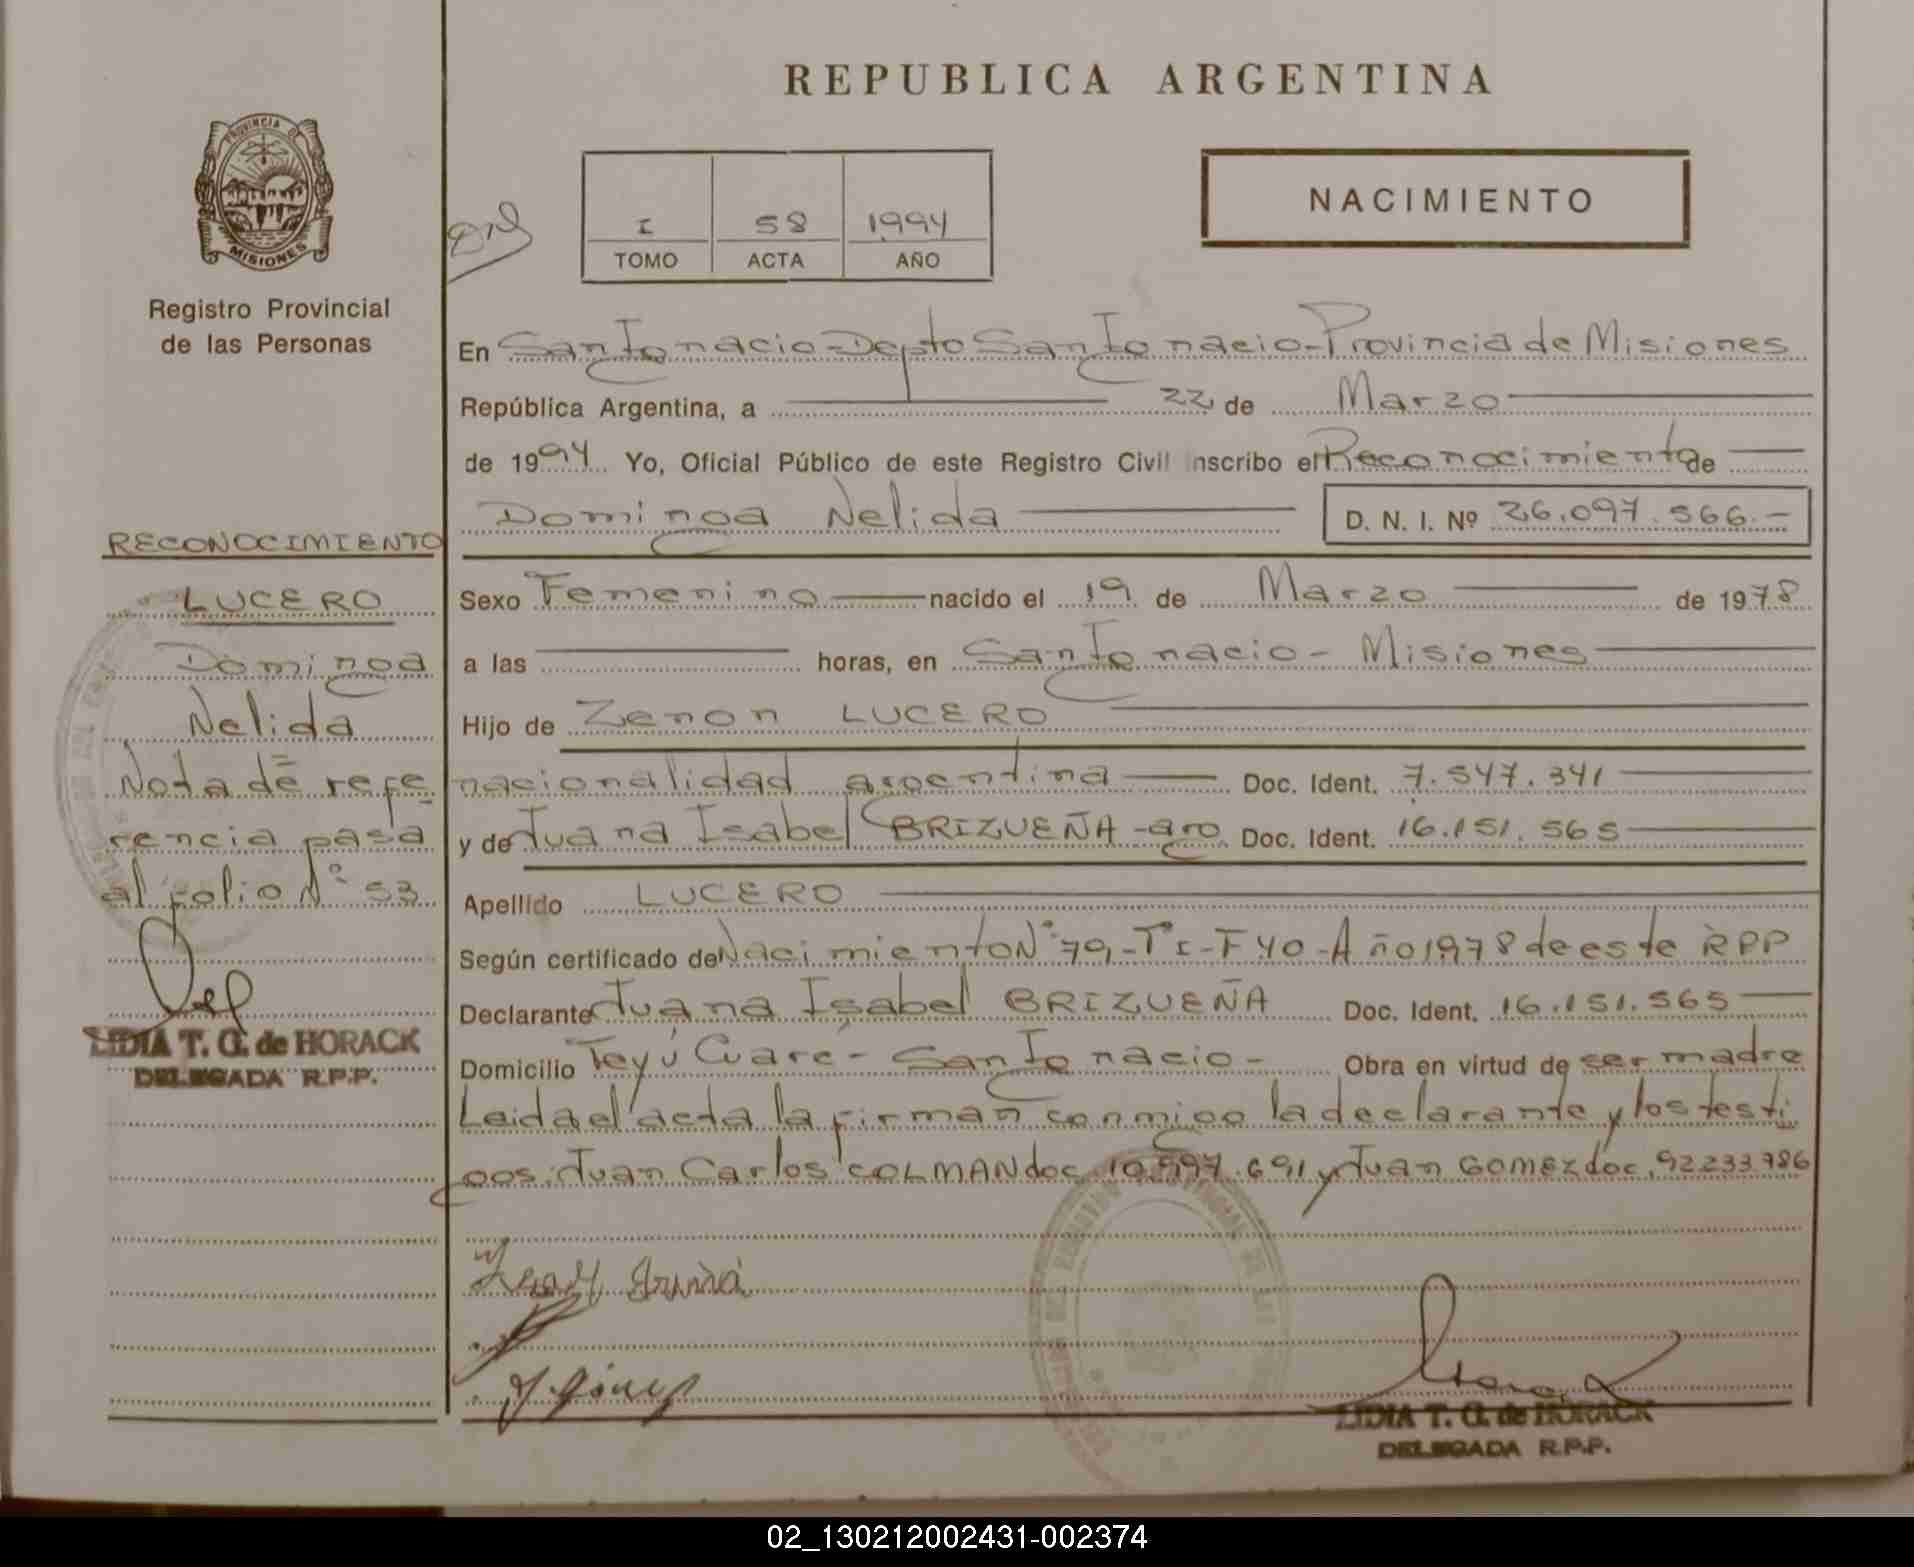 REPUBLICA ARGENTINA
PROVINCIA DE
MISIONES
Registro Provincial
de las Personas
I 58 1994
TOMO ACTA AÑO
NACIMIENTO
En San Ignacio-Depto San Ignacio-Provincia de Misiones
República Argentina, a 22 de Marzo
de 1994 Yo, Oficial Público de este Registro Civil inscribo el Reconocimiento de
Dominga Nelida D. N. I. Nº 26.097.566.-
Sexo Femenino nacido el 19 de Marzo de 1978
a las horas, en San Ignacio - Misiones
Hijo de Zenon LUCERO
nacionalidad argentina Doc. Ident. 7.547.341
y de Juana Isabel BRIZUEÑA-arg Doc. Ident. 16.151.565
Apellido LUCERO
Según certificado de Nacimiento Nº 79,-Tº I-F 40-Año 1978 de este RPP
Declarante Juana Isabel BRIZUEÑA Doc. Ident. 16.151.565
Domicilio Teyú Cuaré - San Ignacio - Obra en virtud de ser madre
Leida el acta la firman conmigo la declarante y los testi
gos: Juan Carlos COLMAN doc. 10.597.691 y Juan GOMEZ doc. 92233786
LIDIA T. G. de HORACK
DELEGADA R.P.P.
RECONOCIMIENTO
LUCERO
Dominga
Nelida
Nota de refe
rencia pasa
al folio Nº 53
LIDIA T. G. de HORACK
DELEGADA R.P.P.
02_130212002431-002374